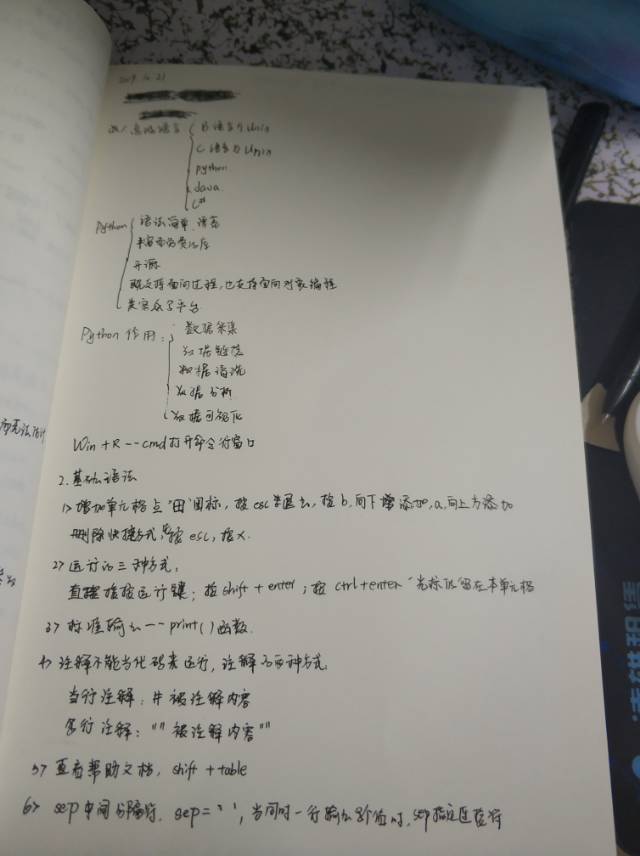 高级语言 { B语言与Unix
C语言与Unix
python
Java
C#
Python { 语法简单、语言
丰富的类库
开源
既支持面向过程,也支持面向对象编程
平台
Python 作用: { 数据采集
数据
数据清洗
数据分析
数据可视化
Win + R -- cmd打开命令行窗口
2.基础语法
1> 增加单元格点"田"图标,按esc退出,按b,向下增添加,a,向上方添加
删除快捷方式,按esc,按x.
2> 运行的三种方式,
直接按运行键;按shift + enter;按ctrl+enter 光标保留在本单元格
3> 标准输出--print()函数.
4> 注释不能当代码来运行,注释了两种方式
当行注释:# 被注释内容
多行注释:"" 被注释内容""
5> 查看帮助文档,shift + table
6> sep中间分隔符. sep=' ',当同时一行输出多个值时,sep指定连接符